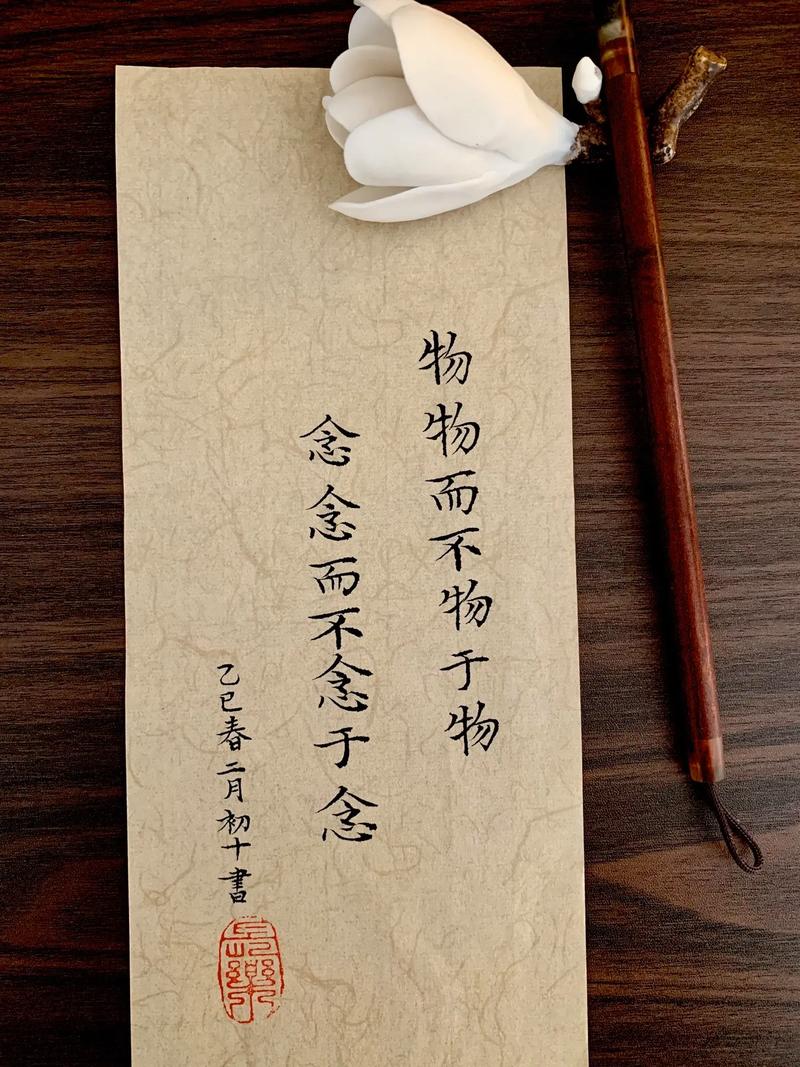 物物而不物于物
念念而不念于念
乙巳春二月初十書
長樂